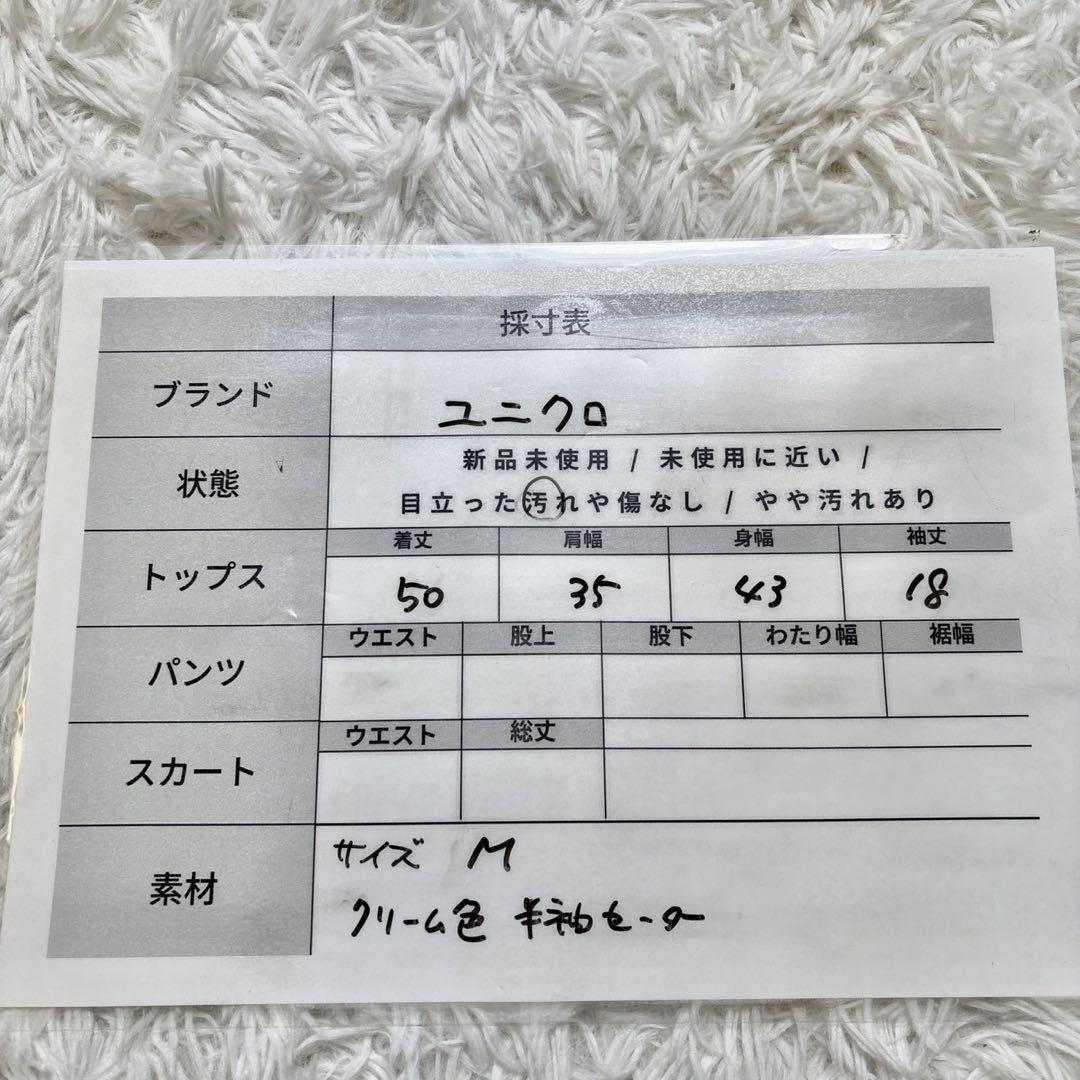 採寸表
ブランド ユニクロ
状態 新品未使用 / 未使用に近い /
目立った汚れや傷なし / やや汚れあり
トップス 着丈 肩幅 身幅 袖丈
50 35 43 18
パンツ ウエスト 股上 股下 わたり幅 裾幅
スカート ウエスト 総丈
素材 サイズ M
クリーム色 半袖セーター